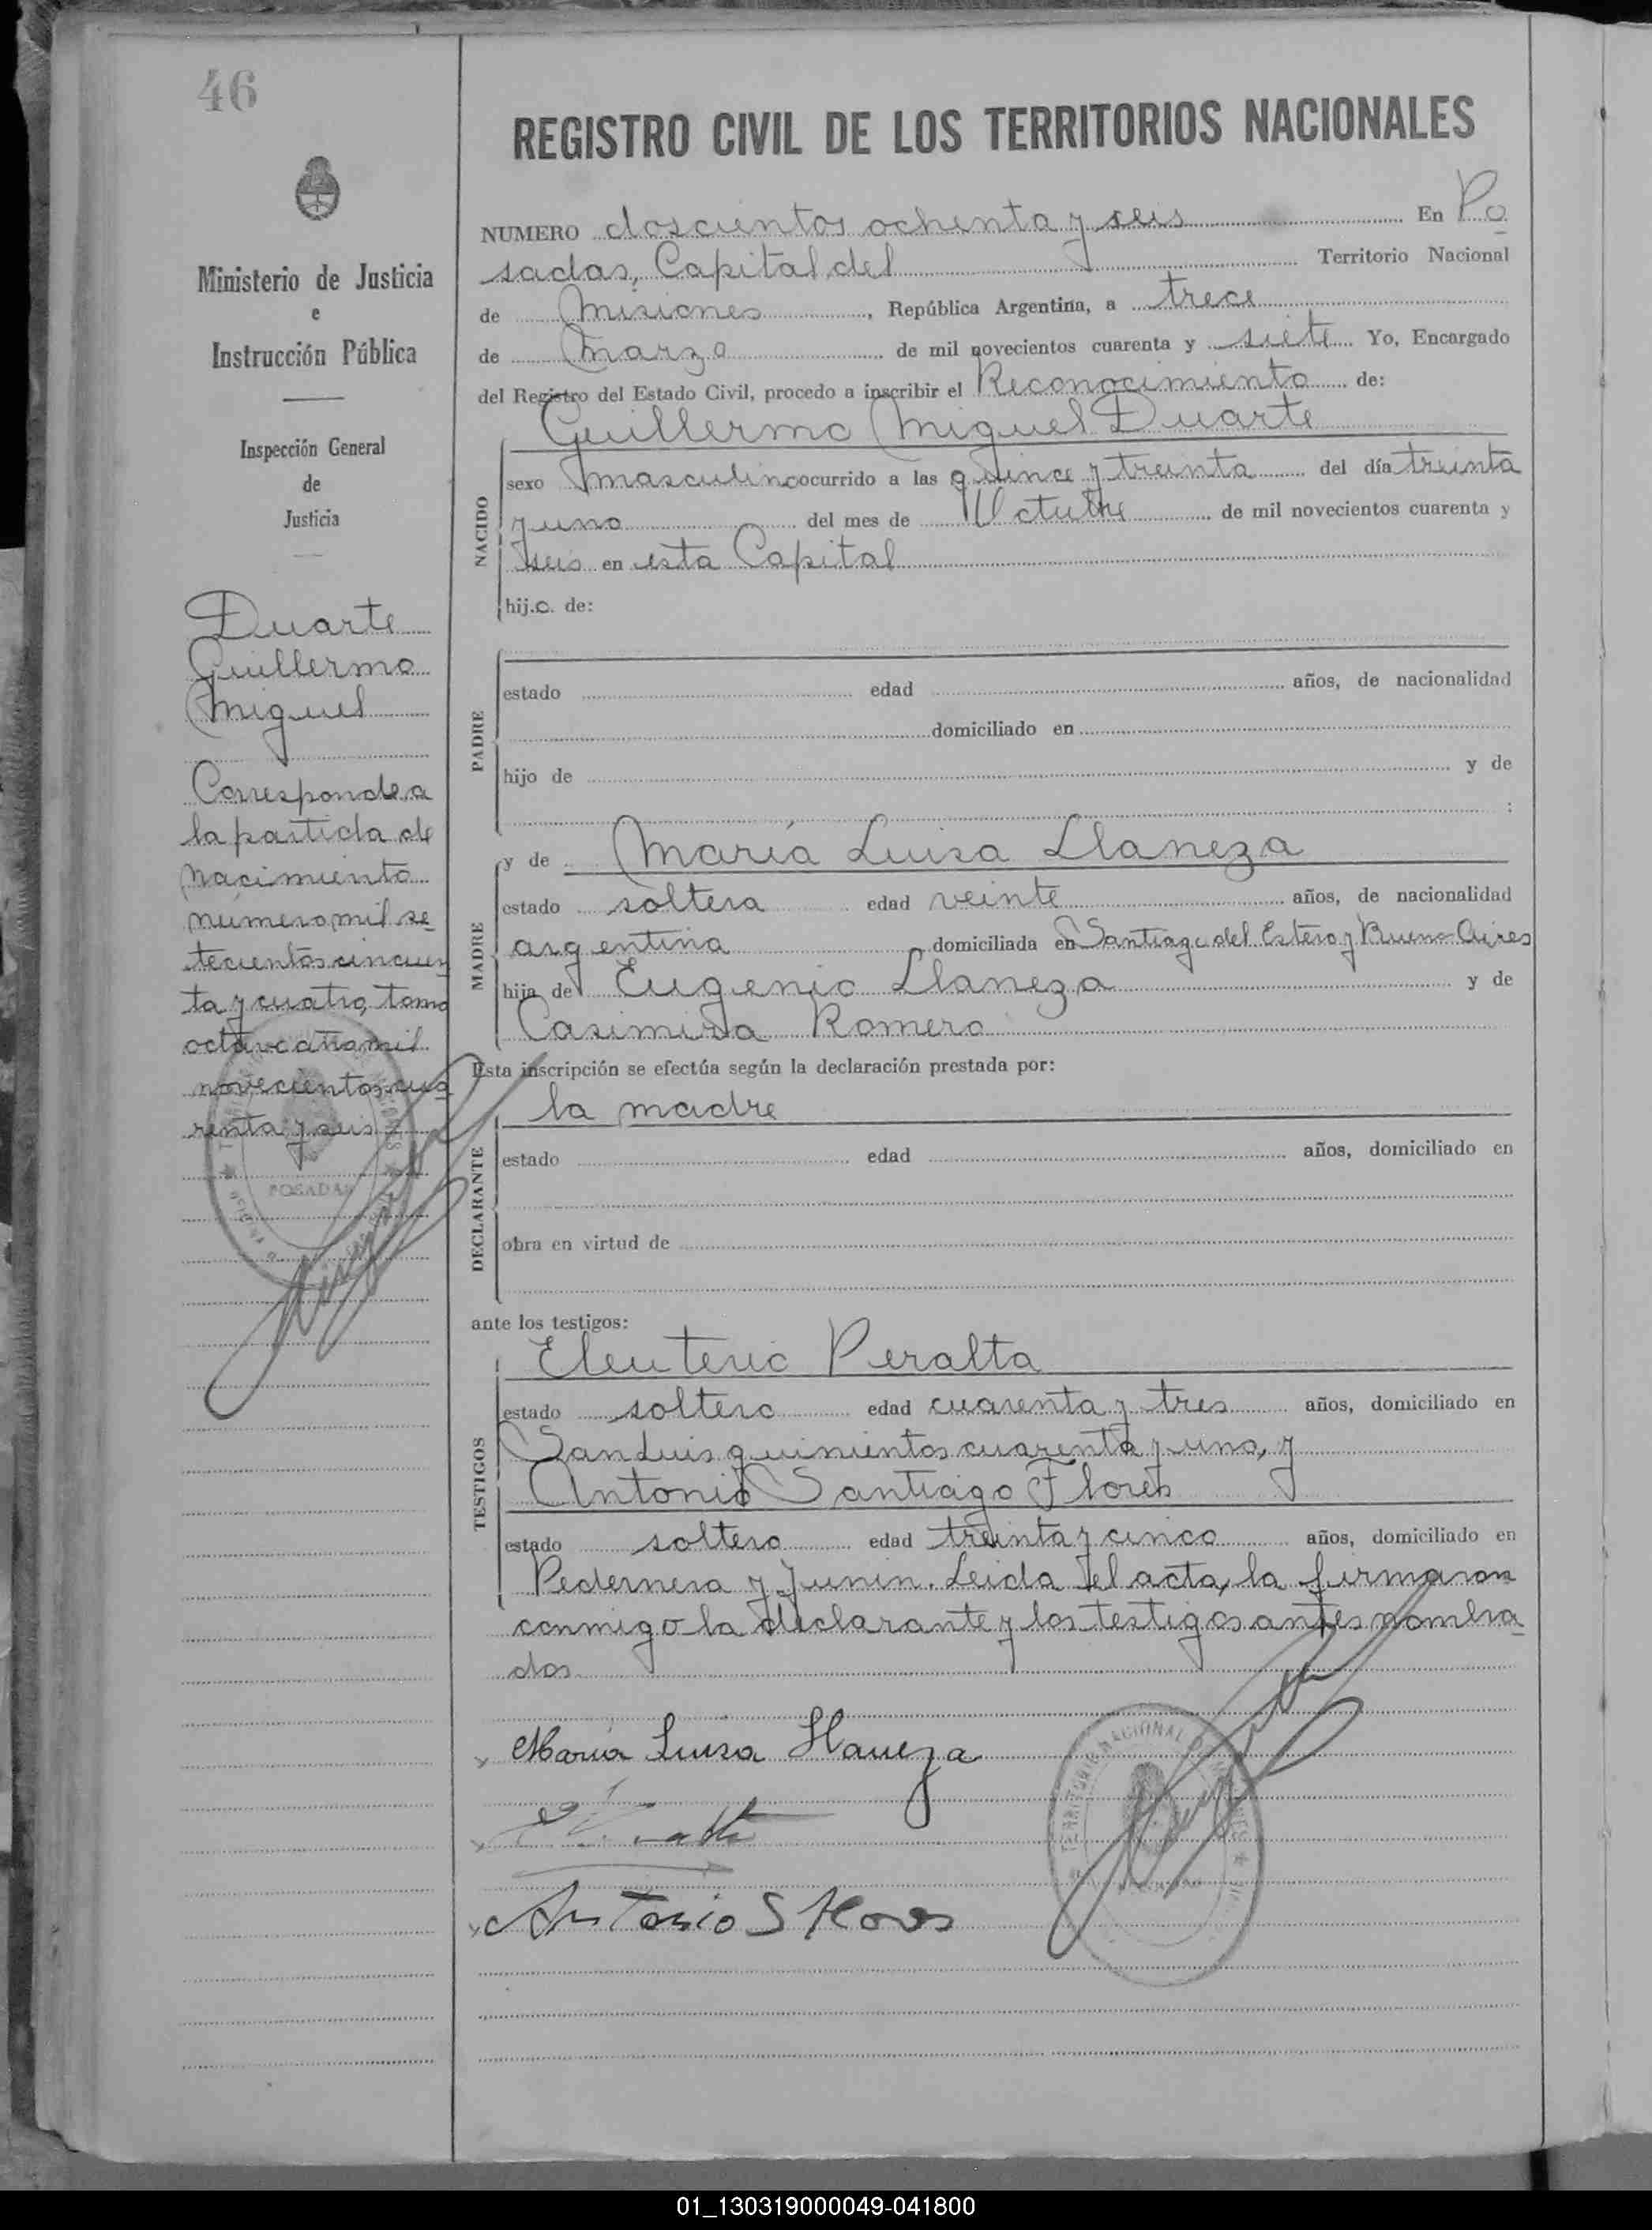 46
Ministerio de Justicia
e
Instrucción Pública
Inspección General
de
Justicia
Duarte
Guillermo
Miguel
Corresponde a
la partida de
nacimiento
número mil se
tecientos cincuen
ta y cuatro, tomo
octavo año mil
novecientos cua
renta y seis
POSADAS
REGISTRO CIVIL DE LOS TERRITORIOS NACIONALES
NUMERO doscientos ochenta y seis En Po
sadas, Capital del Territorio Nacional
de Misiones, República Argentina, a trece
de Marzo de mil novecientos cuarenta y siete Yo, Encargado
del Registro del Estado Civil, procedo a inscribir el Reconocimiento de:
Guillermo Miguel Duarte
NACIDO
sexo masculino ocurrido a las quince y treinta del día treinta
y uno del mes de Octubre de mil novecientos cuarenta y
seis en esta Capital
hij.o. de:
PADRE
estado edad años, de nacionalidad
domiciliado en
hijo de y de
:
MADRE
y de María Luisa Llaneza
estado soltera edad veinte años, de nacionalidad
argentina domiciliada en Santiago del Estero y Buenos Aires
hija de Eugenio Llaneza y de
Casimira Romero
Esta inscripción se efectúa según la declaración prestada por:
DECLARANTE
la madre
estado edad años, domiciliado en
obra en virtud de
ante los testigos:
TESTIGOS
Eleuterio Peralta
estado soltero edad cuarenta y tres años, domiciliado en
San Luis quinientos cuarenta y uno, y
Antonio Santiago Flores
estado soltero edad treinta y cinco años, domiciliado en
Pedernera y Junin. Leida el acta, la firmaron
conmigo la declarante y los testigos antes nombra
dos.
María Luisa Llaneza
Antonio S Flores
TERRITORIO NACIONAL DE MISIONES
01_130319000049-041800